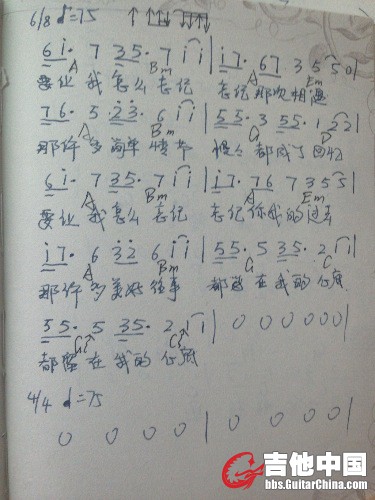 6/8 ♩=75 ↑ ↑↑↓↓↓↓
6 i· 7 35· 7 i i | i7· 67 3 5 5 0 |
A Bm A Em
要让我怎么忘记 忘记那次相遇
76· 5 ·23· 6 i i | 55· 3 55· 1 22 |
A Bm G D
那许多简单情节 都成了回忆
6 i· 7 35· 7 i i | i7· 76 7 3 5 5 |
A Bm A Em
要让我怎么忘记 忘记你我的过去
i7· 6 32 6 i i | 55· 5 35· 2 i i |
A Bm G C
那许多美好往事 都留在我的心底
55· 5 35· 2 i i | 0 0 0 0 0 0 |
G C
都留在我的心底
4/4 ♩=75
0 0 0 0 | 0 0 0 0 |
吉他中国
bbs.GuitarChina.com